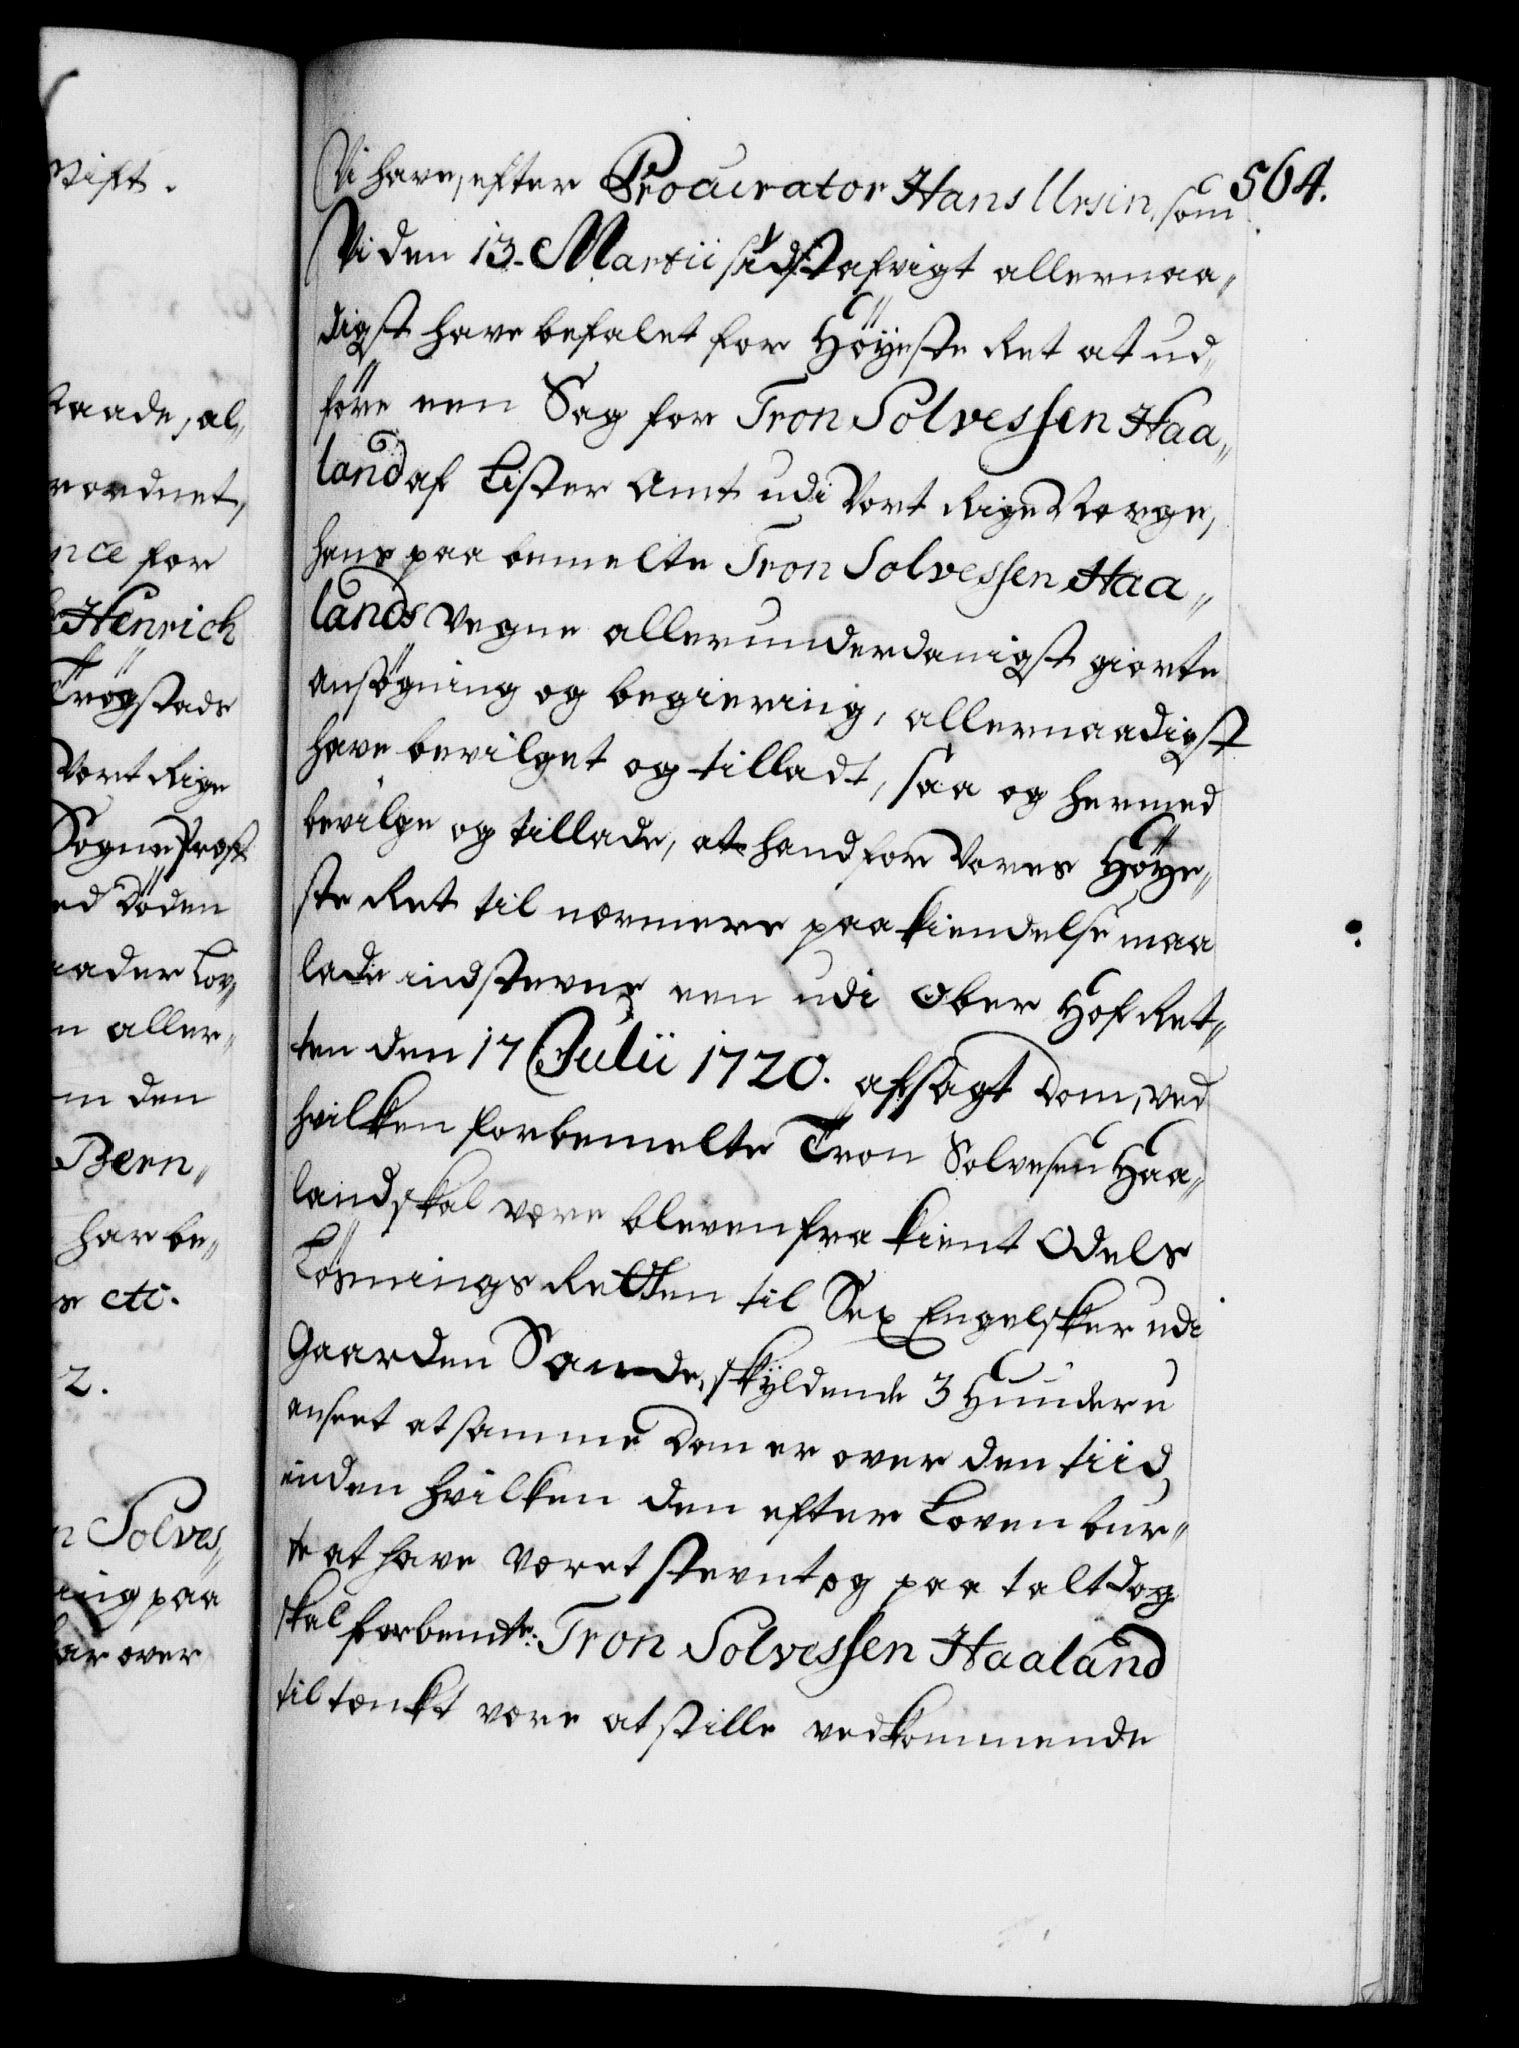 Stift.
Raade, al-
rordnet,
nce for
Henrich
Trögstads
Vort Rige
Sogne Præst
ed Döden
aader Lov,
n aller-
m den
Bern-
har be-
s etc.
2.
n Solves-
ning paa
bar over
564.
Vi have, efter Procurator Hans Ursin, som
Vi den 13. Martii sidst afvigt allernaa-
digst have befalet for Höyeste Ret at ud-
före een Sag for Tron Solvessen Haa-
land af Lister Amt udi Vort Rige Norge,
hans paa bemelte Tron Solvessen Haa-
lands Vegne allerunderdanigst giorte
ansögning og begiering, allernaadigst
have bevilget og tilladt, saa og hermed
bevilge og tillade, at hand for Vores Höye-
ste Ret til nærmere paakiendelse maa
lade indstevne een udi Ober Hof Ret-
ten den 17 Julii 1720. afsagt Dom, ved
hvilken forbemelte Tron Solvesen Haa-
land skal være bleven fra kient Odels
Lösnings Retten til Sex Engelsker udi
Gaarden Sande, skyldende 3 Huuder u
anseet at samme Dom er over den tiid,
inden hvilken den efter Loven bur-
te at have været stevnt og paa talt dog
skal forbemte: Tron Solvessen Haaland
tiltænkt være at stille vedkommende